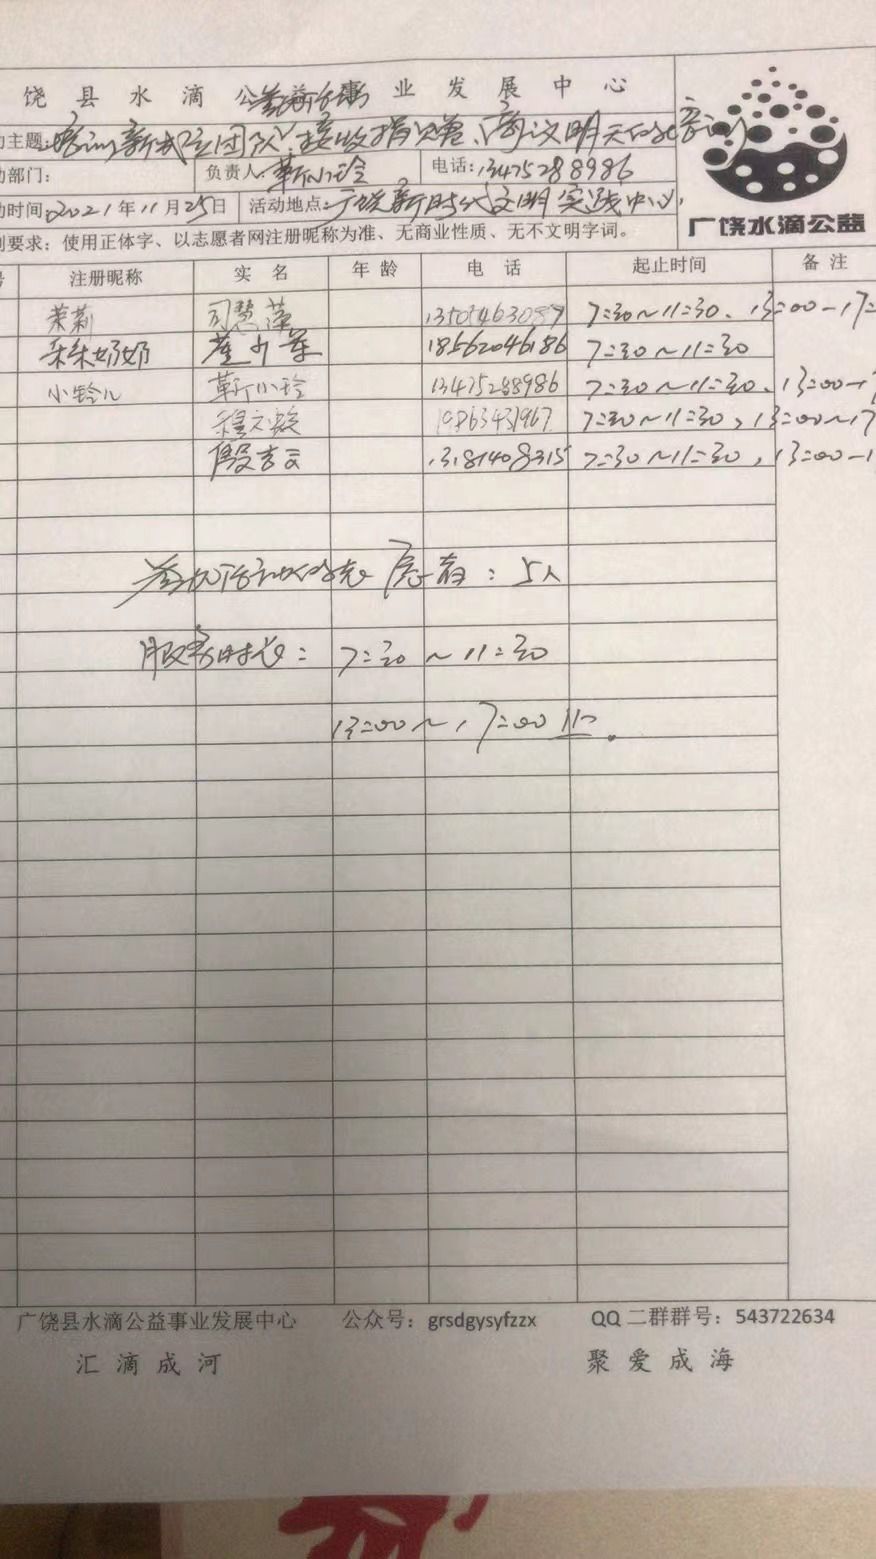 饶县水滴公益事业发展中心
主题:培训新成立团队、接收捐赠、商议明天的培训
部门: 负责人:靳小玲 电话:13475288986
时间:2021年11月25日 活动地点:广饶新时代文明实践中心
要求:使用正体字、以志愿者网注册昵称为准、无商业性质、无不文明字词。
广饶水滴公益
注册昵称 实名 年龄 电话 起止时间 备注
茉莉 司慧萍 7:30~11:30、13:00-17:
朵朵奶奶 18562046186 7:30~11:30
小铃儿 靳小玲 13475288986 7:30~11:30、13:00-17
7:30~11:30,13:00~17
殷吉云 7:30~11:30,13:00-1
参加活动的志愿者:5人
服务时长:7:30~11:30
13:00~17:00止。
广饶县水滴公益事业发展中心 公众号:grsdgysyfzzx QQ二群群号:543722634
汇滴成河 聚爱成海